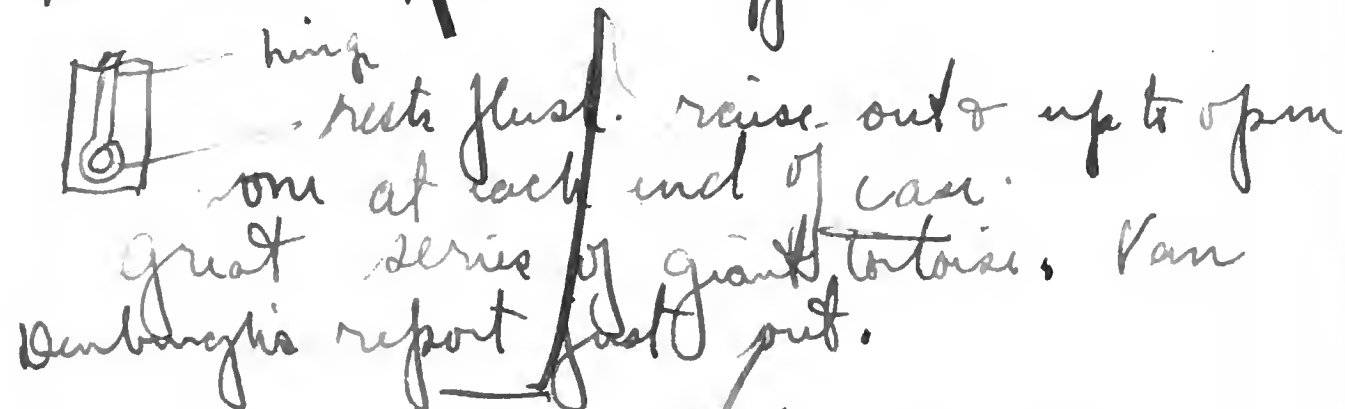 hinge
rests flush. raise out & up to open
one at each end of case.
great series of giant tortoise. Van
Denburgh's report just out.